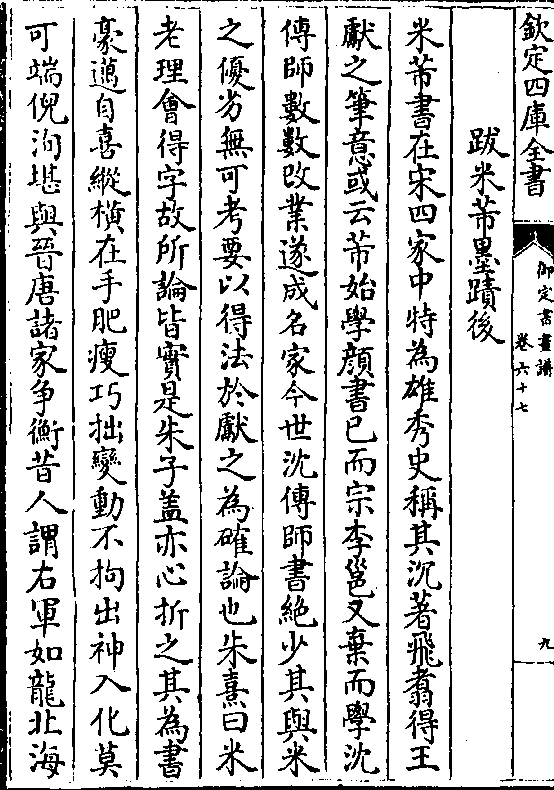 欽定四庫全書
御定書畫譜
卷六十七
九
跋米芾墨蹟後
米芾書在宋四家中特為雄秀史稱其沉著飛翥得王
獻之筆意或云芾始學顔書已而宗李邕又棄而學沈
傳師數數改業遂成名家今世沈傳師書絶少其與米
之優劣無可考要以得法於獻之為確論也朱熹曰米
老理會得字故所論皆實是朱子蓋亦心折之其為書
豪邁自喜縱橫在手肥瘦巧拙變動不拘出神入化莫
可端倪洵堪與晉唐諸家争衡昔人謂右軍如龍北海